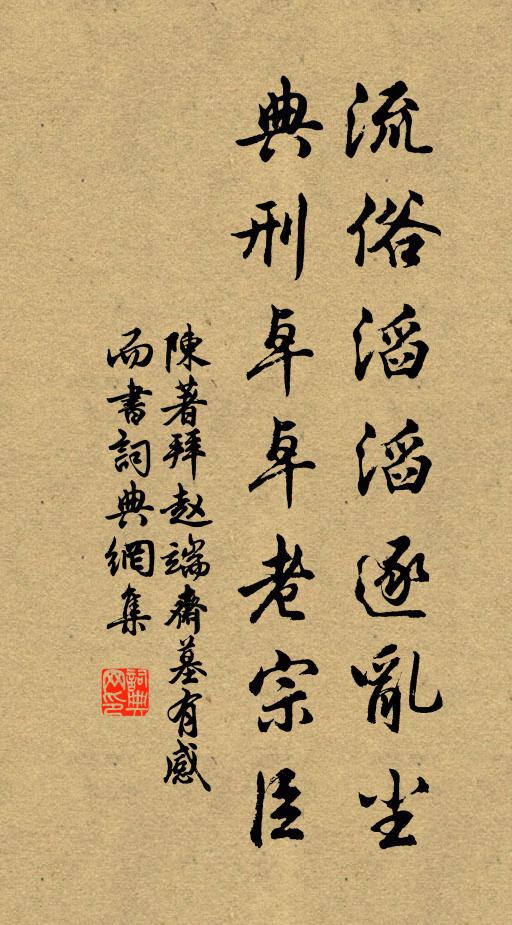 流俗滔滔逐亂尘
典刑卓卓老宗臣
陳著拜赵端齋墓有感
而書詞典網集
詞典
网印